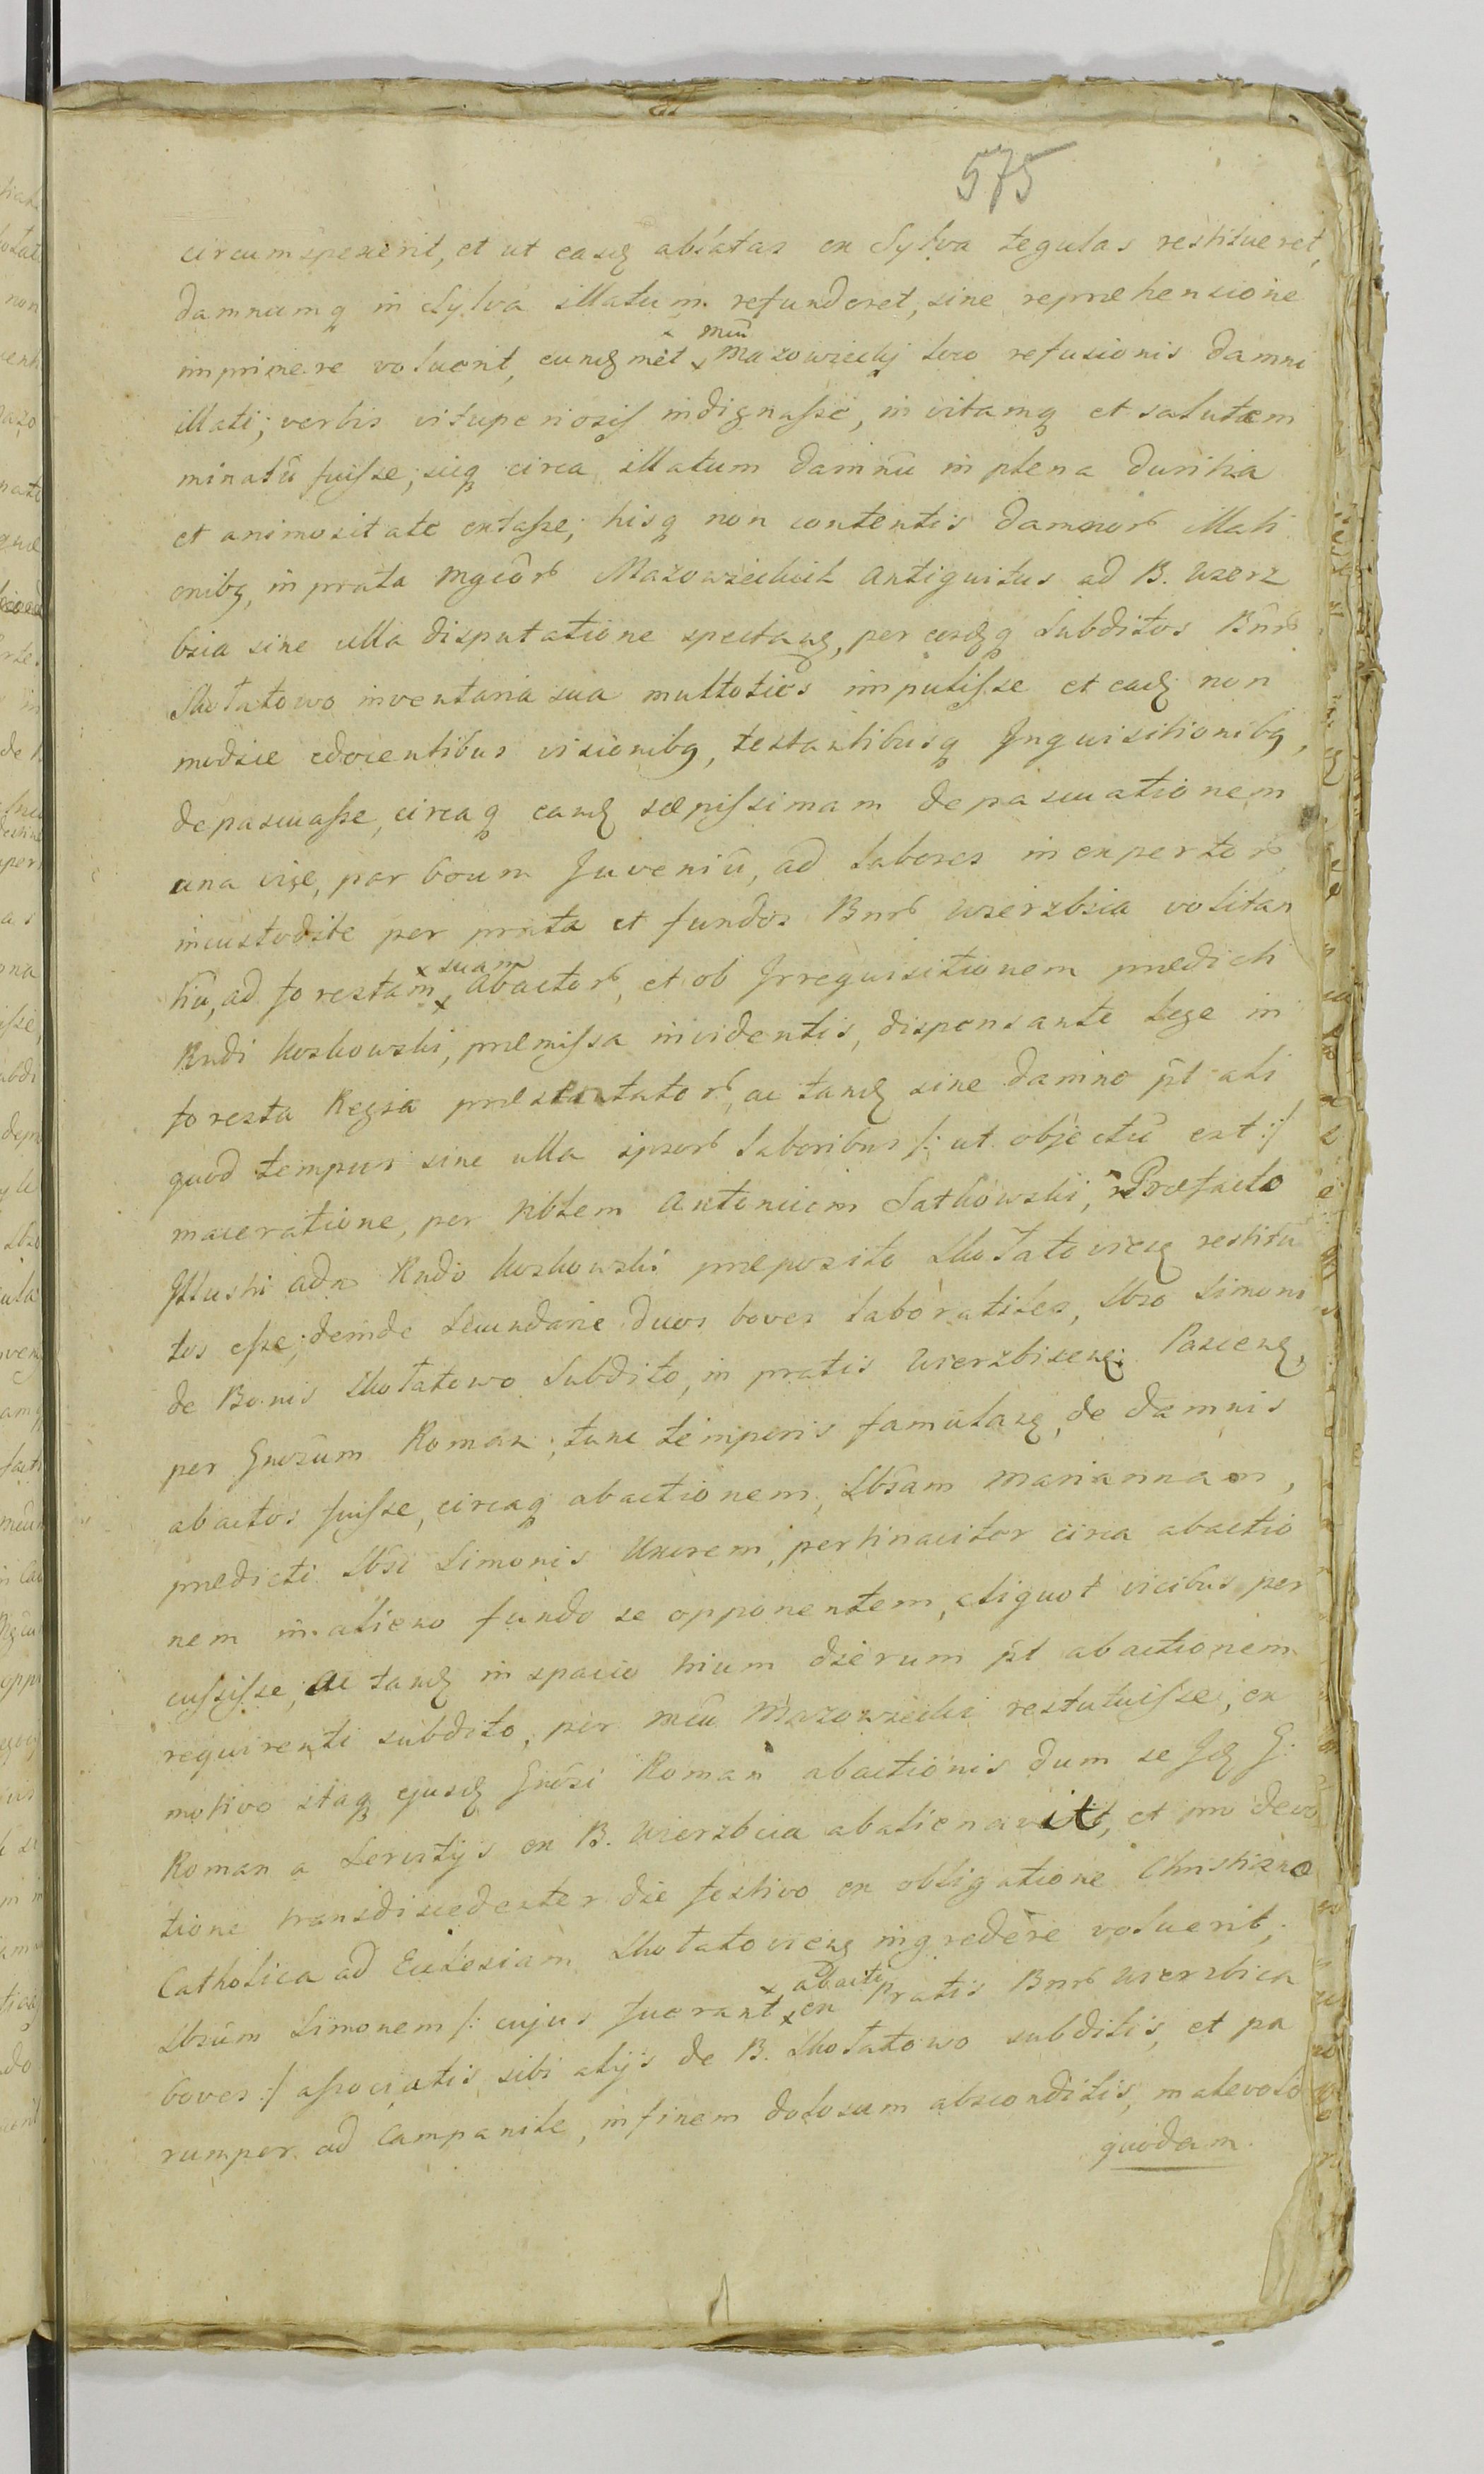 575
circumspexerit, et ut easd ablatas ex Sylva tegulas restitueret,
damnumq in Sylva illatum refunderet, sine reprehensione
imprimere voluerit, eundmet × Mcũ Mazowiecki loco refusionis damni
illati; verbis vituperiosis indignasse, in vitamq et salutem
minatũ fuisse; sicq circa illatum damnũ in plena duritia
et animositate extasse; hisq non contentis damnor illati
onibq, in prata Mgcor Mazowieckich antiquitus ad B. Wierz
bcia sine ulla disputatione spectan, per eosdq Subditos Bnr
Skolatowo inventaria sua multoties impulisse et ead non
modice edocentibus visionibq, testantibusq Inquisitionibq,
depascuasse, circaq eand sæpissimam depascuationem
una vice, par boum Juveniũ, ad labores inexpertor
incustodite per prata et fundos Bnr Wierzbcia volitan
tiũ, ad forestam × suam abactor, et ob Irrequisitionem prædicti
Rndi Koskowski, præmissa invidentis, dispensante lege in
foresta Regia præsentator, ac tand sine damno pt ali
quod tempus sine ulla ipsor laboribus /: ut objectũ ext :/
maceratione, per Nblem Antonium Satkowski, Præfacto
Illustri adm Rndo Koskowski præposito Skolatovien restitu
tos esse; deinde Secundarie duos boves laboratiles, Lbso Simoni
de Bonis Skolatowo Subdito, in pratis Wierzbicen Pascen,
per Gnosum Roman; tunc temporis famulan, de damnis
abactos fuisse, circaq abactionem, Lbsam Mariannam,
prædicti Lbsi Simonis Uxorem, pertinaciter circa abactio
nem in alieno fundo se opponentem, aliquot vicibus per
cussisse, ac tand in spacio trium dierum pt abactionem
requirenti subdito, per Mcũ Mazowiecki restutuisse; ex
motivo itaq ejusd Gnosi Roman abactionis dum se Id G:
Roman a Servitijs ex B. Wierzbcia abalienavit, et pro devo
tione transdiscedenter die festivo ex obligatione Christiano
Catholica ad Ecclesiam Skolatovien ingredere voluerit,
Lbsum Simonem /: cujus fuerant × abacti ex Pratis Bnr Wierzbica
boves :/ associatis sibi alijs de B. Skolatowo subditis, et pa
rumper ad Campanile, in finem dolosum absconditis, malevolo
quodam.